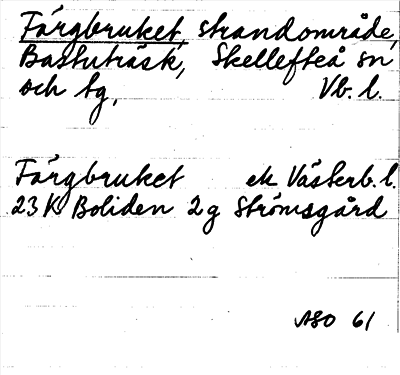 Färgbruket, strandområde,
Bastuträsk, Skellefteå sn
och tg, Vb. l.
Färgbruket ek Västerb. l.
23 K Boliden 2 g Strömsgård
ASO 61